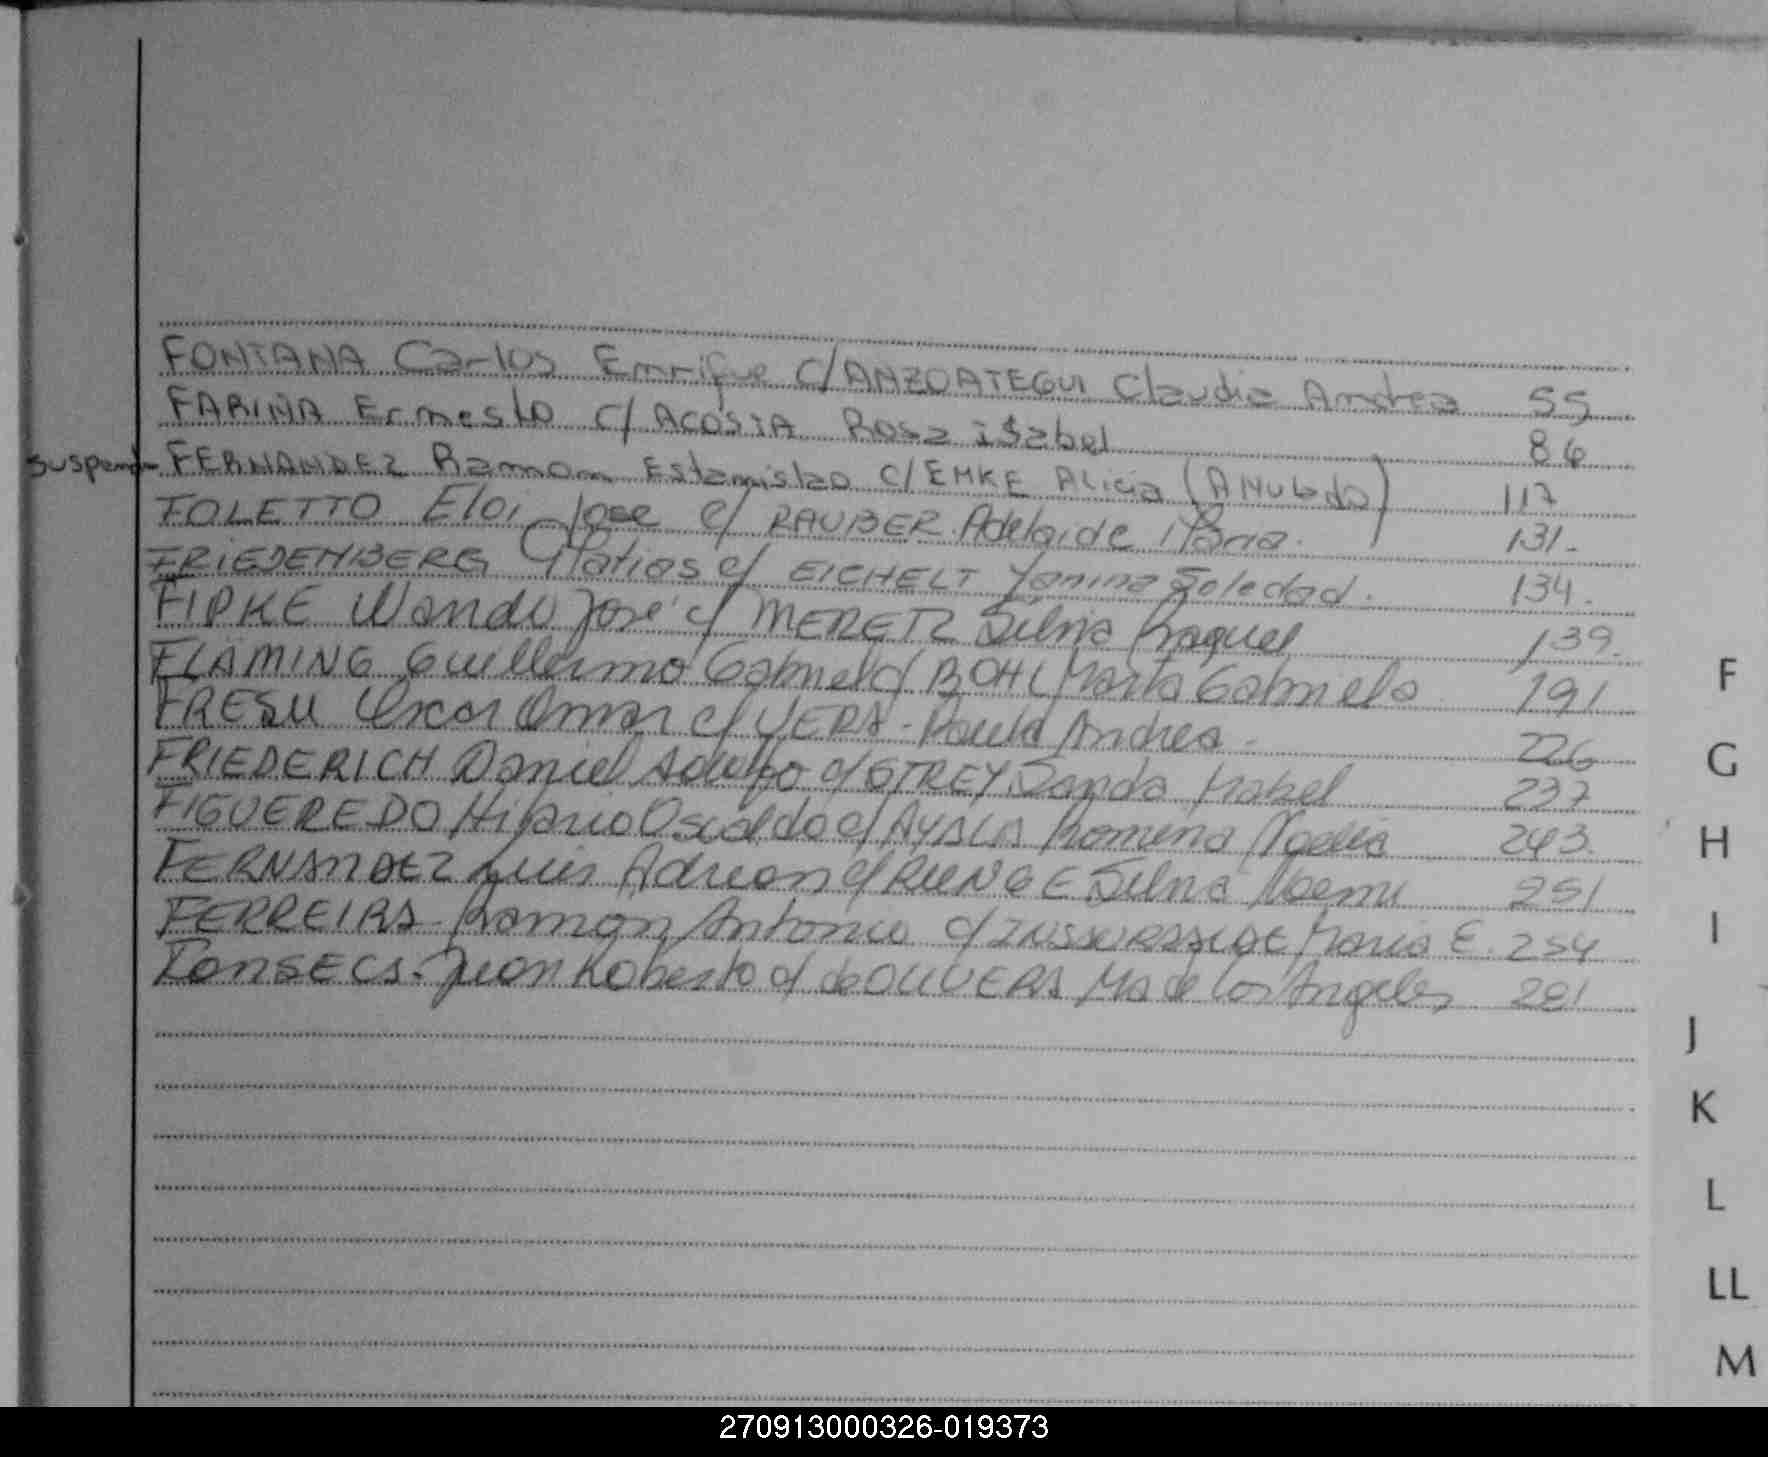 FONTANA Carlos Enrrique c/ ANZOATEGUI Claudia Andrea 55
FARIÑA Ernesto c/ ACOSTA Rosa isabel 86
FERNANDEZ Ramon Estanislao c/ EMKE Alicia (ANulado) 117
FOLETTO Eloi Jose c/ RAUBER Adelaide Maria. 131.
FRIEDENBERG Matias c/ EICHELT Yanina Soledad. 134.
FIPKE Wando José c/ MERETZ Silvia Raquel 139.
FLAMING Guillermo Gabriel c/ BOHL Marta Gabriela 191
FRESU Oscar Omar c/ VERA Paula Andrea. 226
FRIEDERICH Daniel Adolfo c/ STREY Sanda Mabel 237
FIGUEREDO Hilario Oscaldo c/ AYALA Romina Noelia 243.
FERNANDEZ Luis Adrian c/ RUNGE Silvia Noemi 251
FERREIRA Ramon Antonio c/ Maria E. 254
FONSECA Juan Roberto c/ de OLIVERA Ma de los Angeles 281
F
G
H
I
J
K
L
LL
M
270913000326-019373